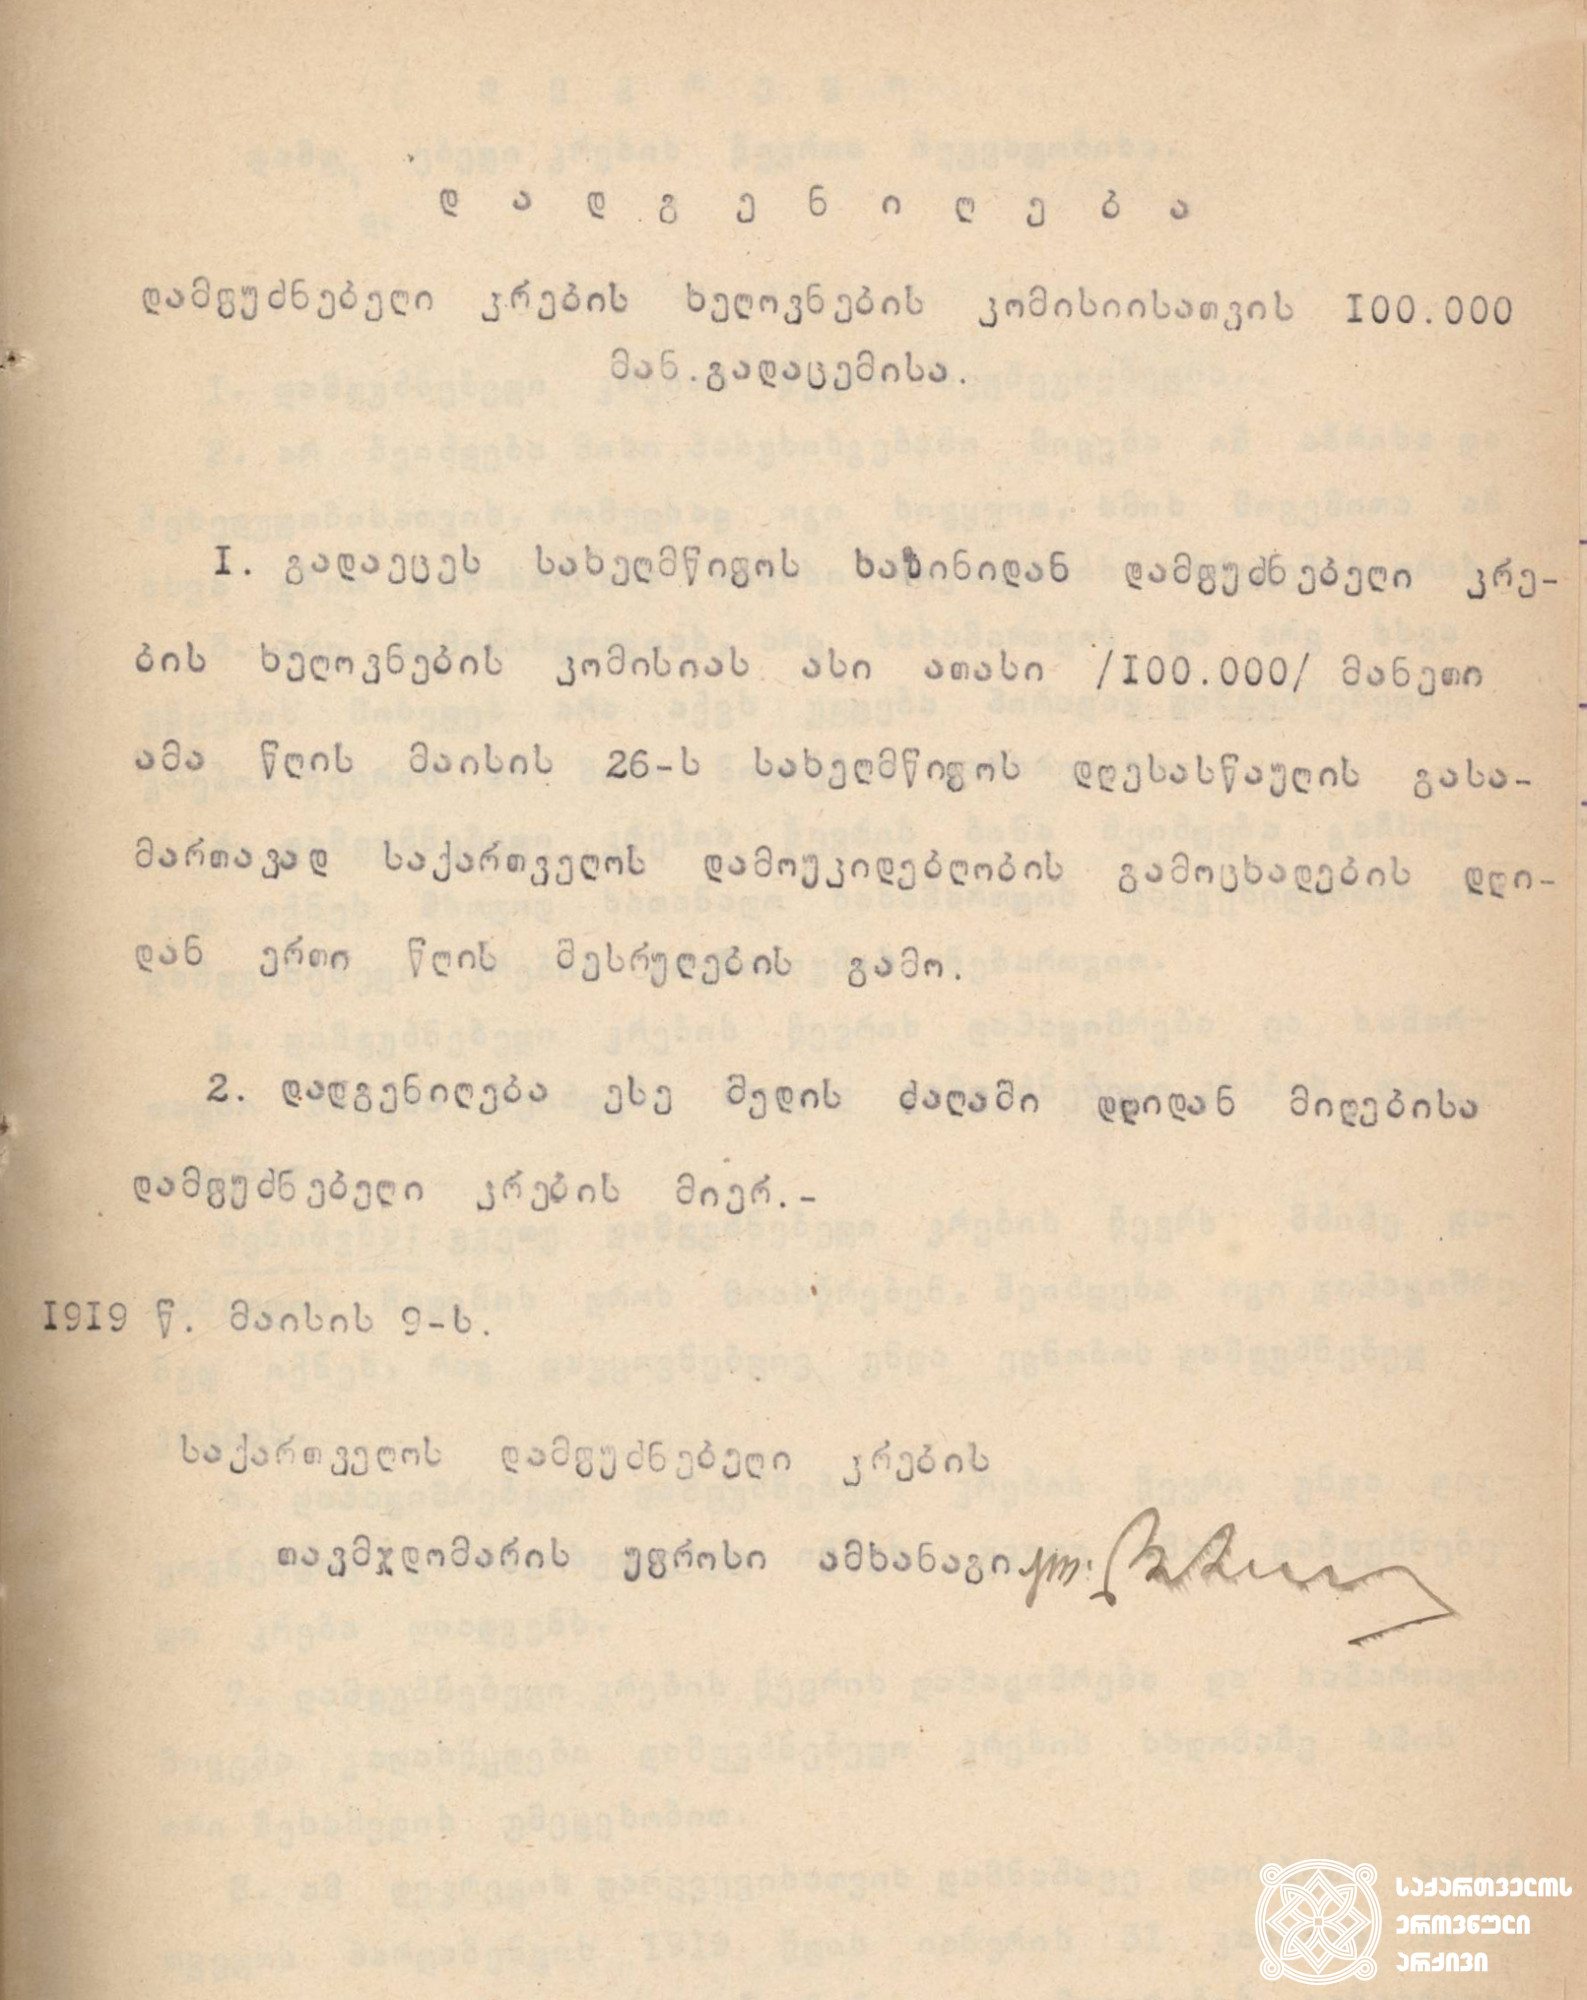 დ ა დ გ ე ნ ი ლ ე ბ ა
დამფუძნებელი კრების ხელოვნების კომისიისათვის I00.000
მან.გადაცემისა.
I. გადაეცეს სახელმწიფოს ხაზინიდან დამფუძნებელი კრე-
ბის ხელოვნების კომისიას ასი ათასი /I00.000/ მანეთი
ამა წლის მაისის 26-ს სახელმწიფოს დღესასწაულის გასა-
მართავად საქართველოს დამოუკიდებლობის გამოცხადების დღი-
დან ერთი წლის შესრულების გამო.
2. დადგენილება ესე შედის ძალაში დღიდან მიღებისა
დამფუძნებელი კრების მიერ.-
I9I9 წ. მაისის 9-ს.
საქართველოს დამფუძნებელი კრების
თავმჯდომარის უფროსი ამხანაგი
საქართველოს
ეროვნული
არქივი